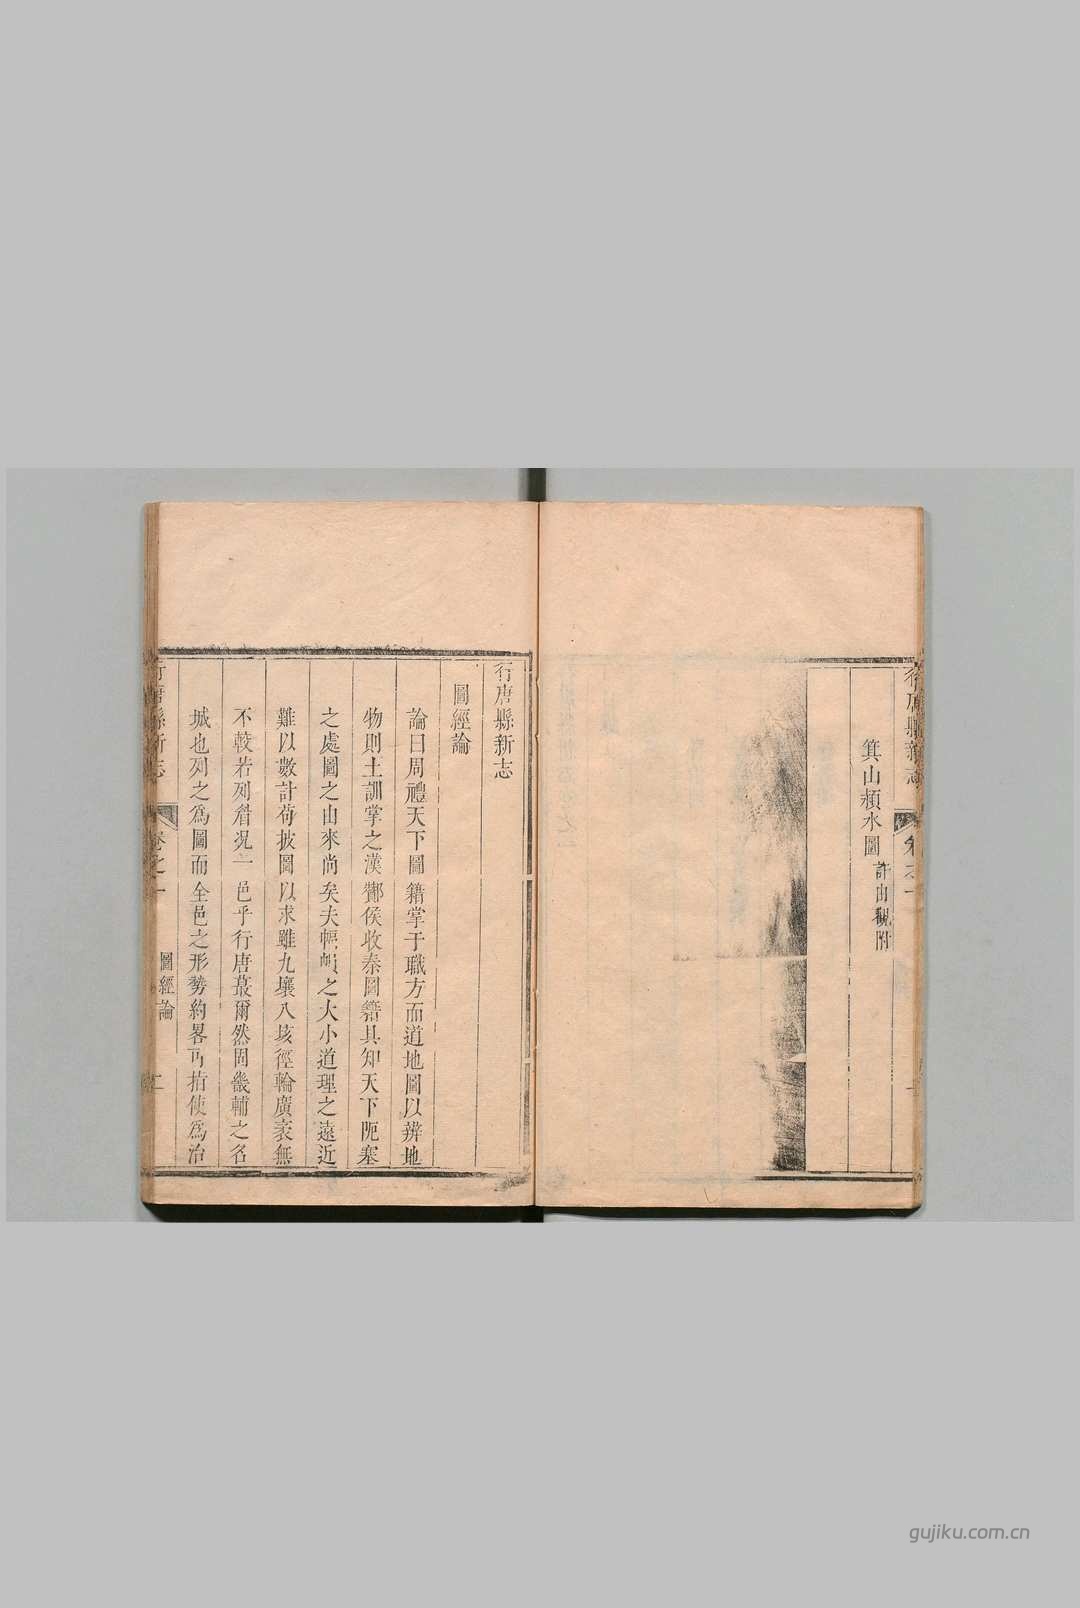 行唐縣新志
卷之一
箕山潁水圖許由觀附
行唐縣新志
圖經論
論曰周禮天下圖籍掌于職方而道地圖以辨地
物則土訓掌之漢酇侯收秦圖籍具知天下阨塞
之處圖之由來尚矣夫幅幀之大小道理之遠近
難以數計苟披圖以求雖九壤八垓徑輪廣袤無
不較若列眉況一邑乎行唐蕞爾然固畿輔之名
城也列之為圖而全邑之形勢約畧可指使為治
行唐縣新志
卷之一
圖經論
二
gujiku.com.cn